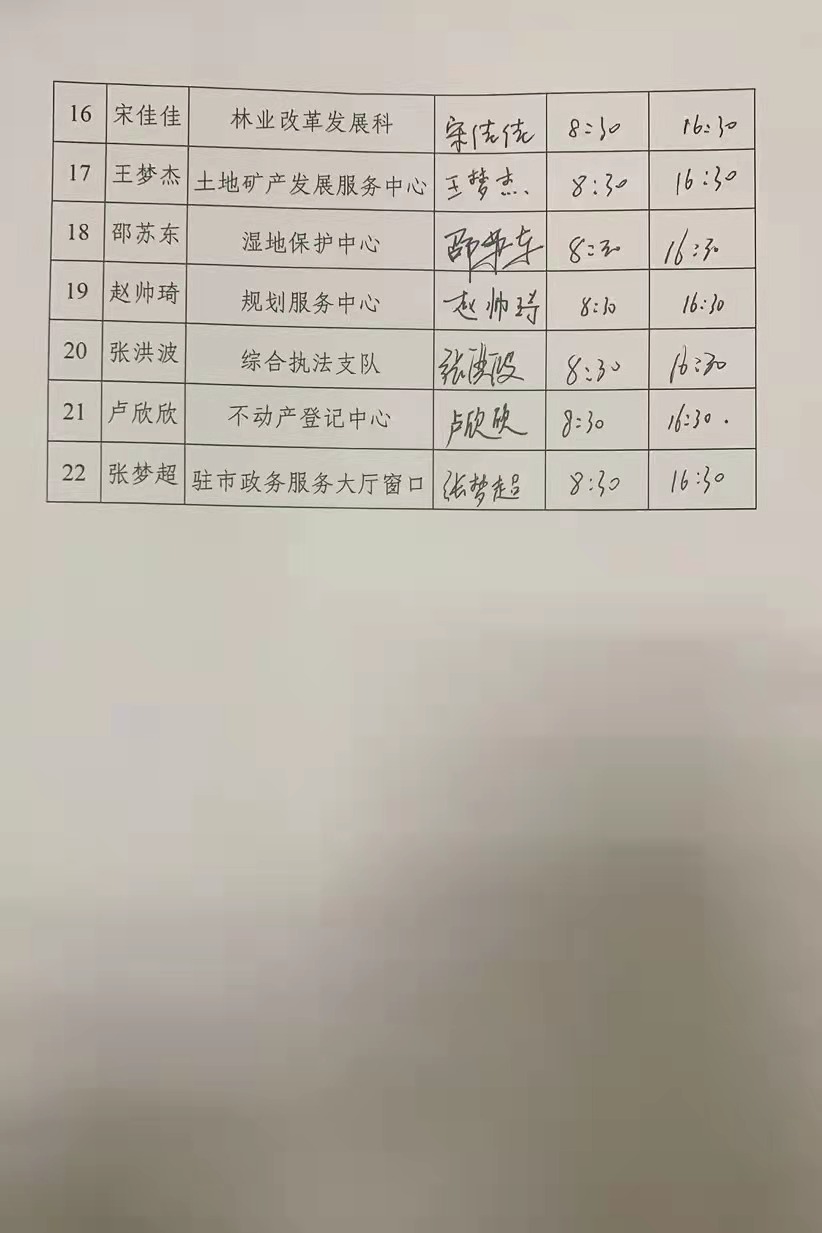 16 宋佳佳 林业改革发展科 宋佳佳 8:30 16:30
17 王梦杰 土地矿产发展服务中心 王梦杰. 8:30 16:30
18 邵苏东 湿地保护中心 邵苏东 8:30 16:30
19 赵帅琦 规划服务中心 赵帅琦 8:30 16:30
20 张洪波 综合执法支队 张洪波 8:30 16:30
21 卢欣欣 不动产登记中心 卢欣欣 8:30 16:30.
22 张梦超 驻市政务服务大厅窗口 张梦超 8:30 16:30